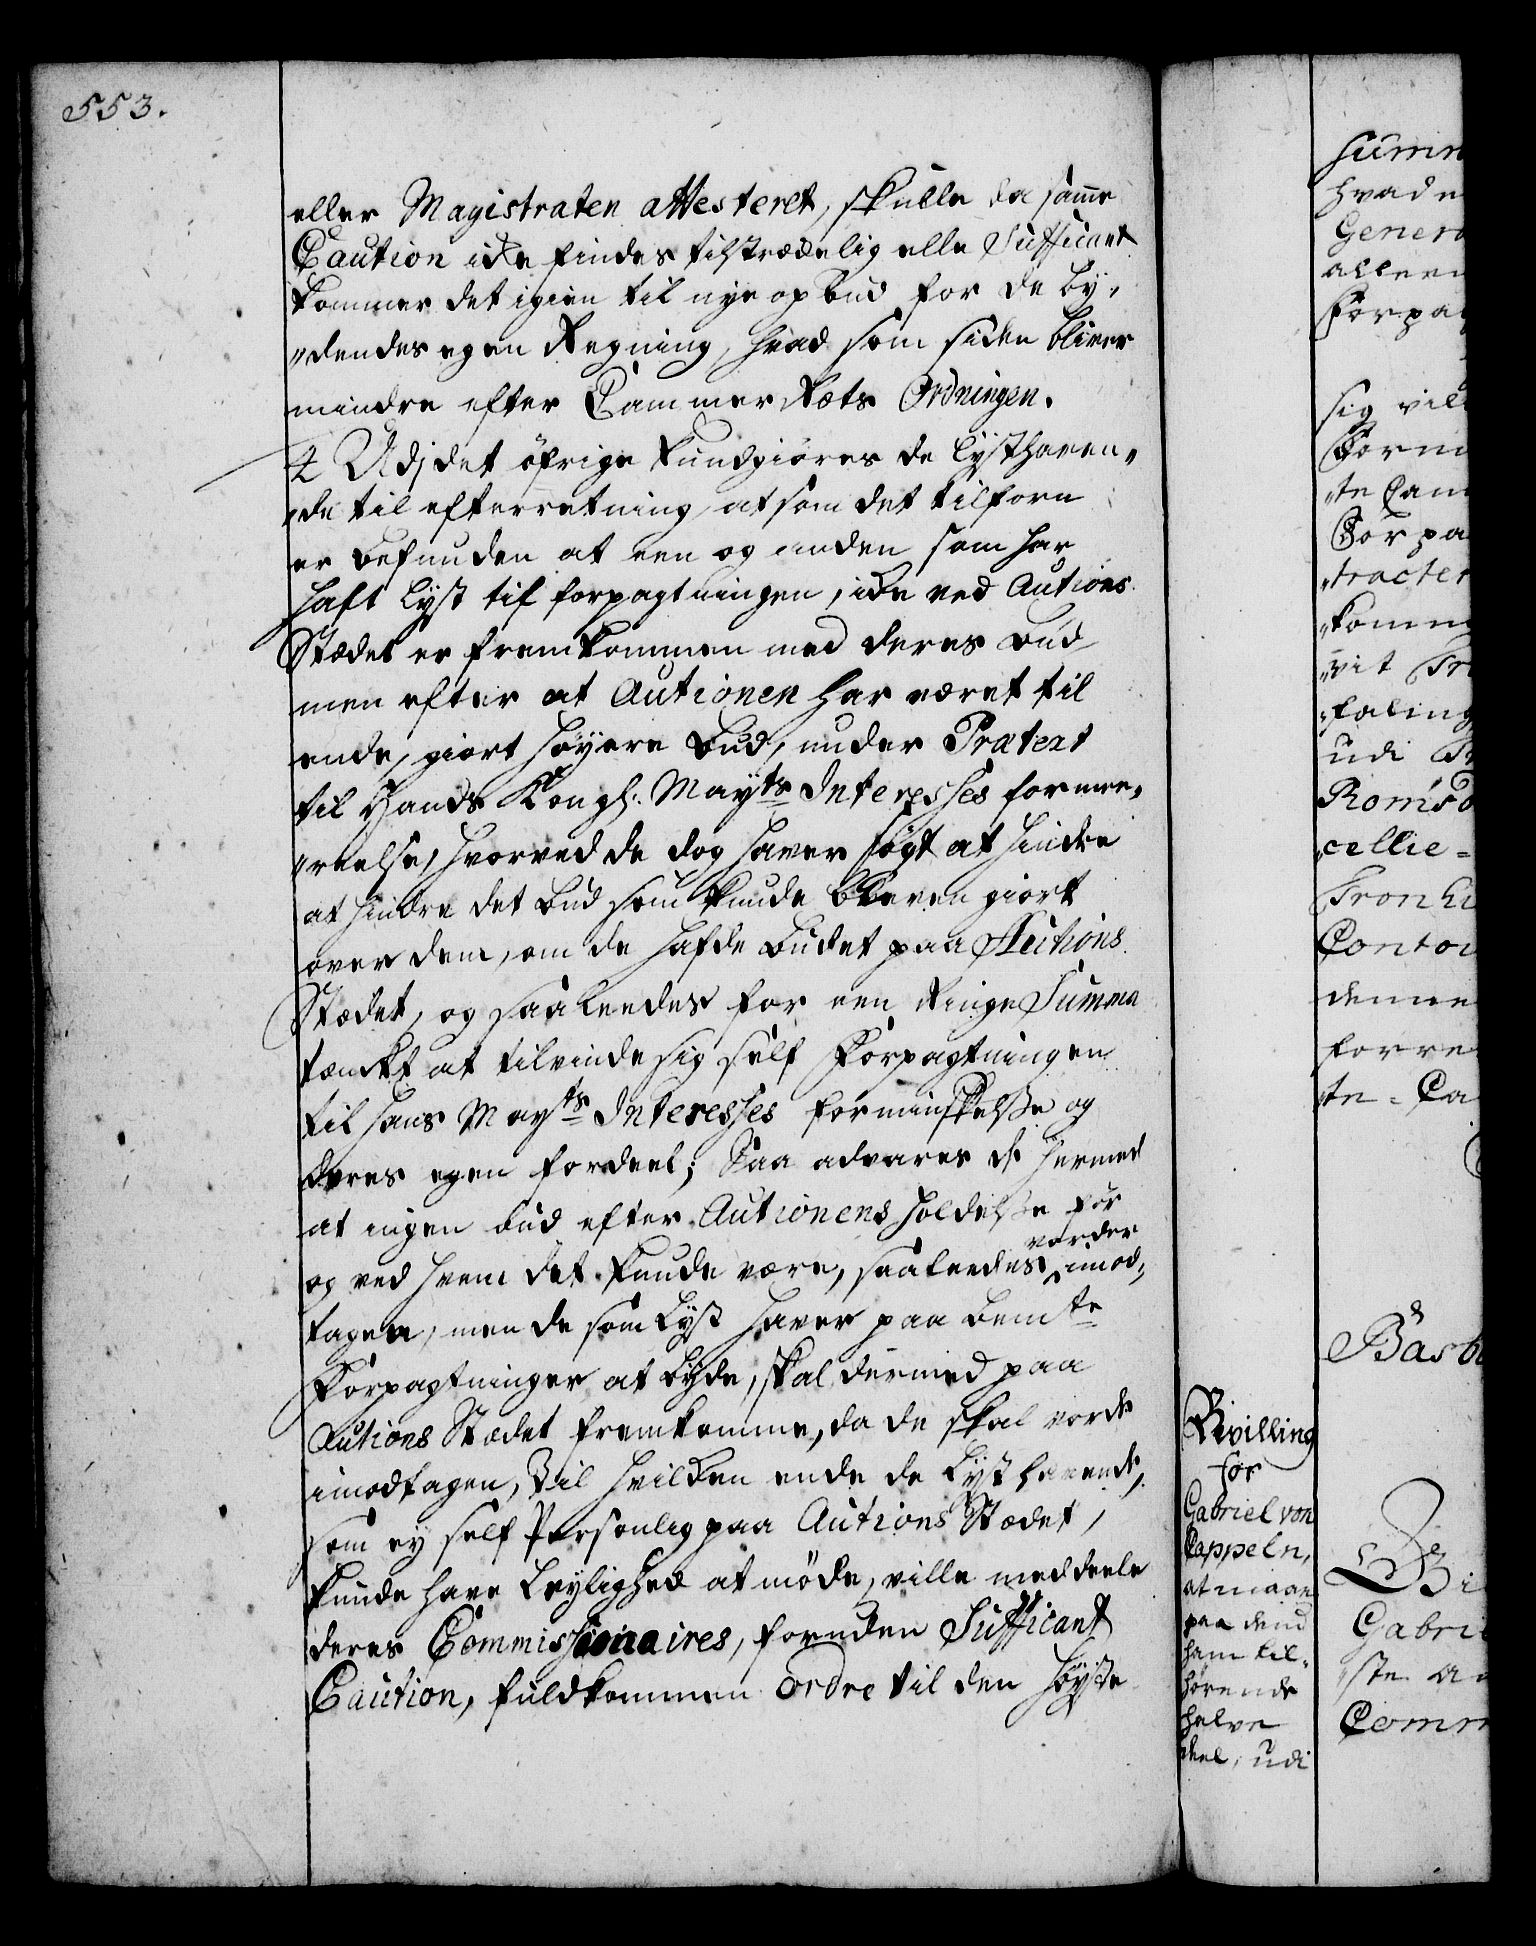 553.
eller Magistraten attesteret, skulle da samme
Caution icke findes tilstrædelig elle Sufficant
kommer det igien til nye opbud for de by„
„dendes egen Regning, hvad som siden bliver
mindre efter Cammer Rets Ordningen.
4 Udj det öfrige kundgiöres de lysthaven„
„de til efterretning, at som det tilforn
er befunden at een og anden som har
haft lyst til forpagtningen, icke ved Autions
Stædet er fremkommen med deres bud
men efter at Autionen har været til
ende, giort höyere bud, under Pratext
til Hands Kongl: Mayts Interesses formee„
„reelse, hvorved de dog haver sögt at hindre
at hindre det bud som kunde bleven giort
over dem, om de hafde budet paa Autions
Stædet, og saaleedes for een Ringe Summa
tænckt at tilvinde sig self Forpagtningen
til hans Mayts Interesses forminskelsse og
deres egen fordeel; Saa advares de hermed
at ingen bud efter Autionens holdelsse for
vorder
og ved hvem det kunde være, saaleedes imod„
tagen, men de som lyst haver paa bemte
Forpagtninger at byde, skal dermed paa
Autions Stædet fremkomme, da de skal vorde
imodtagen, Til hvilcken ende de lysthavende,
som ey self Personlig paa Autions Stædet,
kunde have leylighed at möde, ville meddeele
deres Commissionaires, foruden Sufficant
Caution, fuldkommen ordre til den höyste
Bevilling
for
Gabriel von
Cappeln,
at maae
paa dend
ham til„
hörende
halve
deel, udi
Summ
hvad e
Genera
alleen
Forpa
sig vil
Form
„te Cam
Forpa
„tracter
„komm
„vit Tr
„faling
udi Tr
Romsd
„cellie=
Tronhi
Contoi
denne
forre
„te=Ca
Basb
Gabri
„ste a
Comm